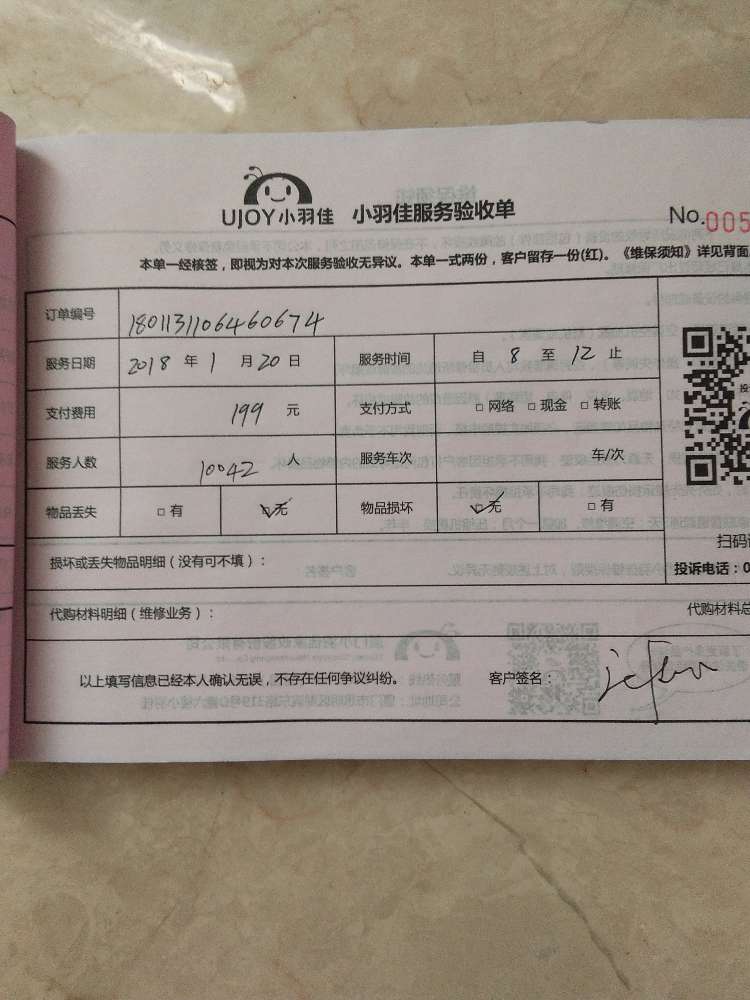 UJOY小羽佳 小羽佳服务验收单
No.005
本单一经核签，即视为对本次服务验收无异议。本单一式两份，客户留存一份(红)。《维保须知》详见背面
订单编号 1801131106460674
服务日期 2018 年 1 月 20 日 服务时间 自 8 至 12 止
支付费用 199 元 支付方式 □ 网络 □ 现金 □ 转账
服务人数 10042 人 服务车次 车/次
物品丢失 □ 有 ☑ 无 物品损坏 ☑ 无 □ 有
扫码
损坏或丢失物品明细（没有可不填）：
投诉电话：0
代购材料明细（维修业务）：
代购材料总
以上填写信息已经本人确认无误，不存在任何争议纠纷。 客户签名：